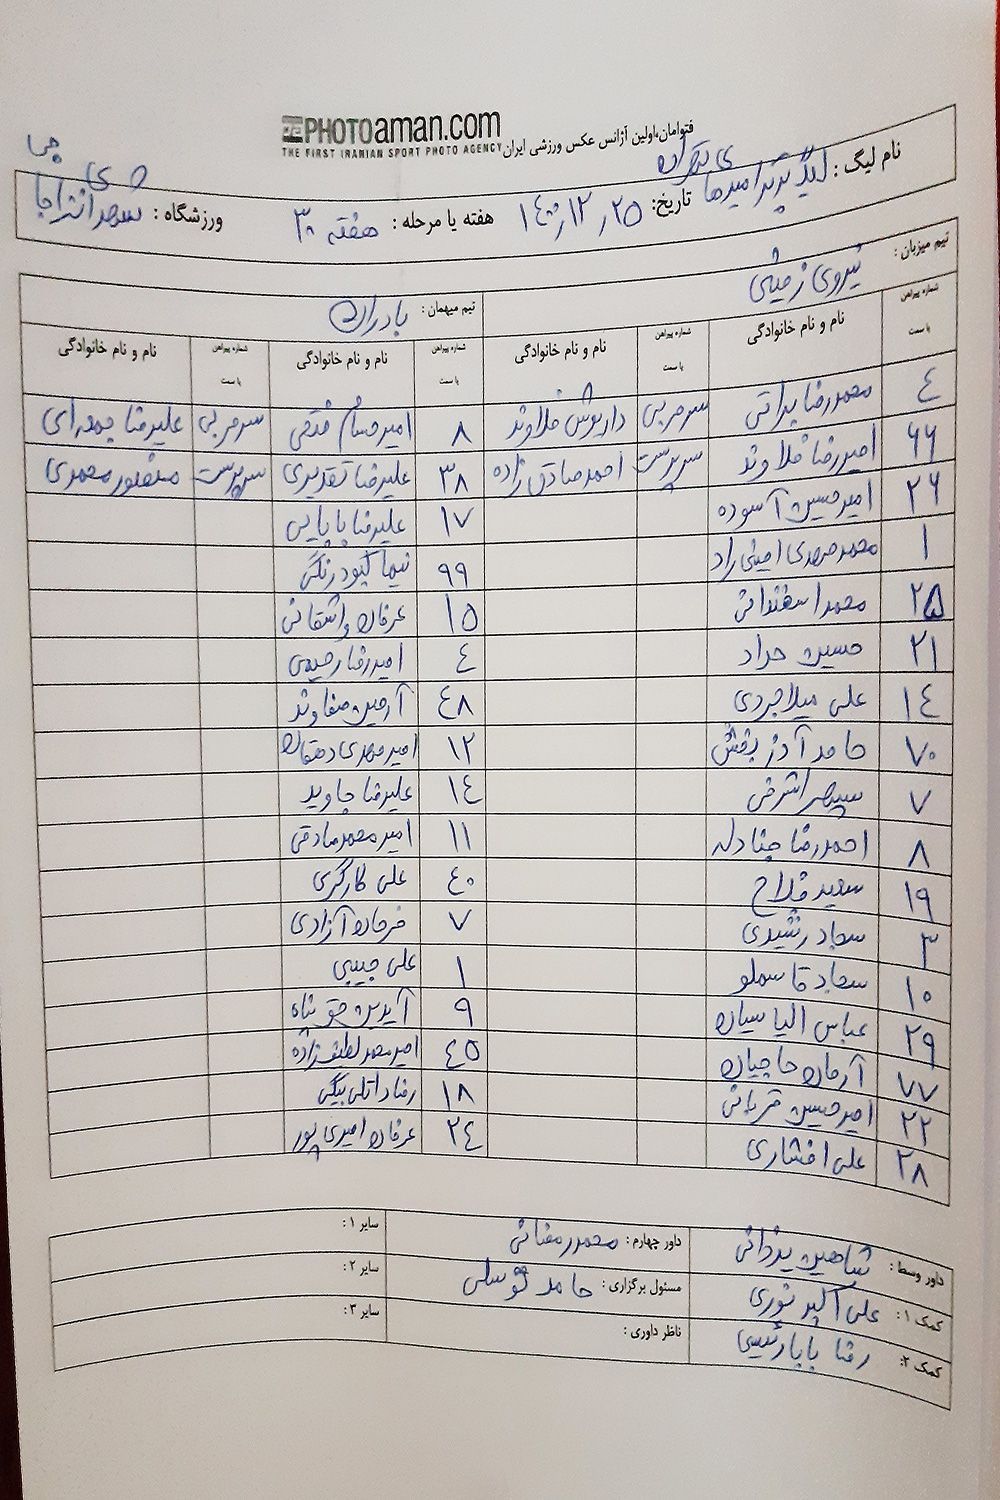 PHOTOaman.com
THE FIRST IRANIAN SPORT PHOTO AGENCY
فتوامان،اولین آژانس عکس ورزشی ایران
نام لیگ : لیگ برتر امیدهای تهران
تاریخ: ۱۴۰۰/۱۲/۲۵
هفته یا مرحله : هفته ۳۰
ورزشگاه : شهدای نزاجا
تیم میزبان : نیروی زمینی
تیم میهمان : بادران
شماره پیراهن یا سمت نام و نام خانوادگی شماره پیراهن یا سمت نام و نام خانوادگی شماره پیراهن یا سمت نام و نام خانوادگی شماره پیراهن یا سمت نام و نام خانوادگی
۴ محمدرضا براتی سرمربی داریوش فلاوند ۸ امیرحسام فتحی سرمربی علیرضا
۶۶ امیررضا فلاوند سرپرست احمد صادق زاده ۳۸ علیرضا تقدیری سرپرست منصور محمدی
۲۶ امیرحسین آسوده ۱۷ علیرضا بابایی
۱ محمدمهدی امینی راد ۹۹ نیما کبودرنگی
۲۵ محمد اسفندانی ۱۵ عرفان واشقانی
۲۱ حسین حداد ۴ امیررضا رحیمی
۱۴ علی میلاجردی ۴۸ آرمین صفاوند
۷۰ حامد آذربخش ۱۲ امیرمهدی دهقان
۷ سپهر اشرفی ۱۴ علیرضا جاوید
۸ احمدرضا جنادله ۱۱ امیرمحمد صادقی
۱۹ سعید فلاح ۴۰ علی کارگری
۳ سجاد رشیدی ۷ فرحان آزادی
۱۰ سجاد قاسملو ۱ علی حبیبی
۲۹ عباس الیاسیان ۹ آیدین حق پناه
۷۷ آرمان حاجیان ۴۵ امیرمحمد لطیف زاده
۲۲ امیرحسین قربانی ۱۸ رضا اتلی بیگی
۲۸ علی افشاری ۲۴ عرفان امیری پور
داور وسط : شاهین یزدانی داور چهارم : محمد رمضانی سایر ۱ :
کمک ۱ : علی اکبر نوری مسئول برگزاری : حامد توسلی سایر ۲ :
کمک ۲: رضا بابارئیسی ناظر داوری : سایر ۳ :